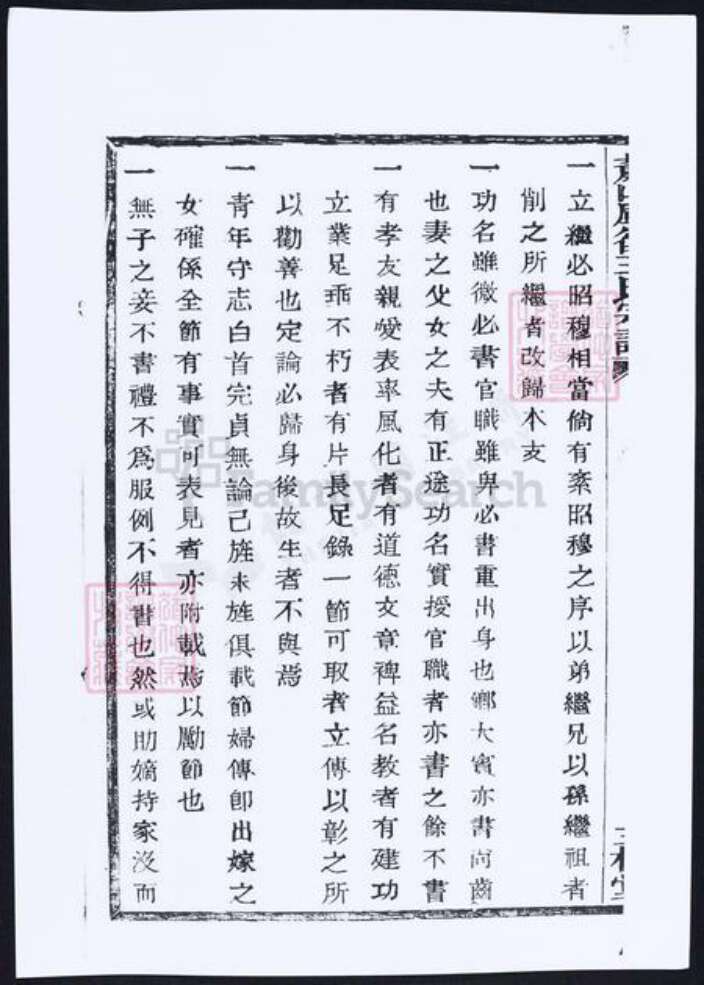 一立繼必昭穆相當倘有紊昭穆之序以弟繼兄以孫繼祖者
削之所繼者改歸本支
一功名雖微必書官職雖卑必書重出身也鄉大賓亦書尚齒
也妻之父女之夫有正途功名實授官職者亦書之餘不書
一有孝友親愛表率風化者有道德文章裨益名教者有建功
立業足垂不朽者有片長足錄一節可取者立傳以彰之所
以勸善也定論必歸身後故生者不與焉
一青年守志白首完貞無論已旌未旌俱載節婦傳即出嫁之
女確係全節有事實可表見者亦附載焉以勵節也
一無子之妾不書禮不爲服例不得書也然或助嫡持家沒而
FamilySearch